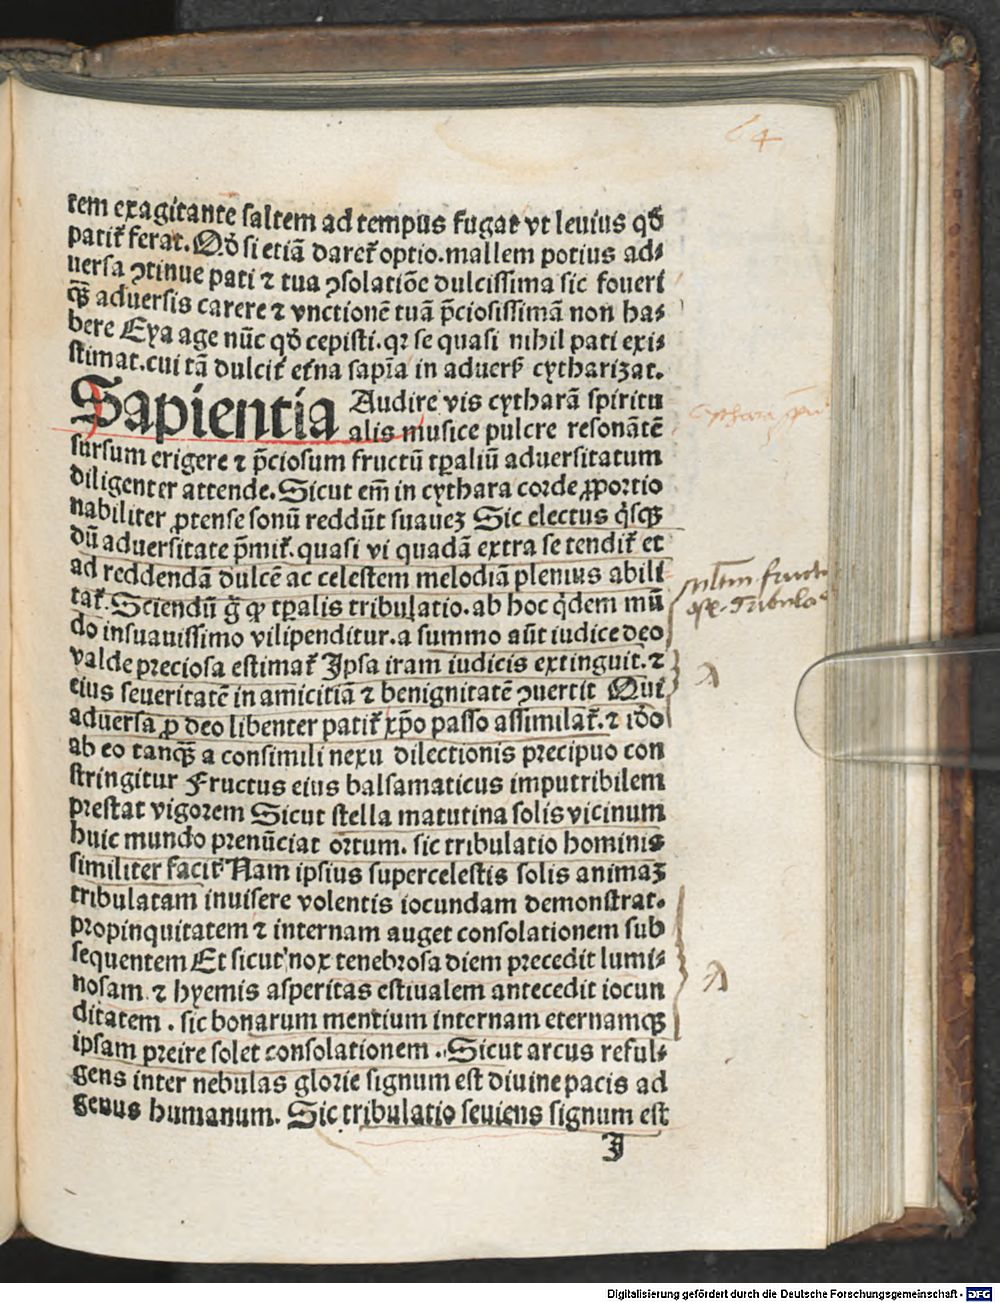 64
tem exagitante saltem ad tempus fugat vt leuius qđ
patit᷑ ferat. Qđ si etiā daret᷑ optio. mallem potius ad⸗
uersa ↄtinue pati ⁊ tua ↄsolatiōe dulcissima sic foueri
qꝫ̄ aduersis carere ⁊ vnctionē tuā p̄ciosissimā non ha⸗
bere Eya age nūc qđ cepisti. qꝛ se quasi nihil pati exi⸗
stimat. cui tā dulcit᷑ et᷑na sapīa in aduerẜ cytharizat.
Sapientia Audire vis cytharā spiritu
alis musice pulcre resonātē
Cythara
sursum erigere ⁊ p̄ciosum fructū tꝑaliū aduersitatum
diligenter attende. Sicut em̄ in cythara corde ꝓportio
nabiliter ꝓtense sonū reddūt suauez Sic electus q̇sqꝫ
dū aduersitate p̄mit᷑. quasi vi quadā extra se tendit᷑ et
ad reddendā dulcē ac celestem melodiā plenius abili
tat᷑. Sciendū g̊ ꝙ tꝑalis tribulatio. ab hoc q̇dem mū
do insuauissimo vilipenditur. a summo aūt iudice deo
valde preciosa estimat᷑ Ipsa iram iudicis extinguit. ⁊
eius seueritatē in amicitiā ⁊ benignitatē ↄuertit Qui
aduersa ꝓ deo libenter patit᷑ xp̄o passo assimilat᷑. ⁊ iđo
ab eo tanqꝫ̄ a consimili nexu dilectionis precipuo con
stringitur Fructus eius balsamaticus imputribilem
prestat vigorem Sicut stella matutina solis vicinum
huic mundo prenūciat ortum. sic tribulatio hominis
similiter facit᷑ Nam ipsius supercelestis solis animaꝫ
tribulatam inuisere volentis iocundam demonstrat.
propinquitatem ⁊ internam auget consolationem sub
sequentem Et sicut nox tenebrosa diem precedit lumi⸗
nosam ⁊ hyemis asperitas estiualem antecedit iocun
ditatem . sic bonarum mentium internam eternamqꝫ
ipsam preire solet consolationem . Sicut arcus reful⸗
gens inter nebulas glorie signum est diuine pacis ad
genus humanum. Sic tribulatio seuiens signum est
I
Digitalisierung gefördert durch die Deutsche Forschungsgemeinschaft - DFG